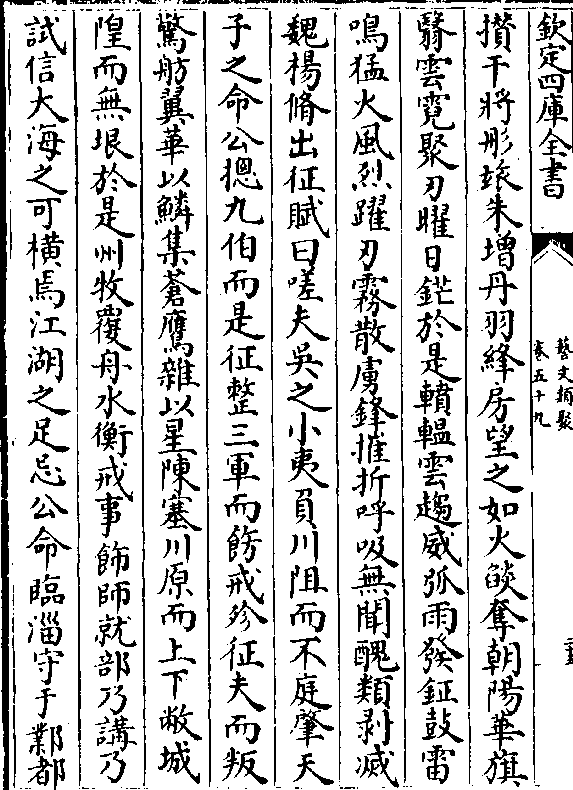 欽定四庫全書
藝文類聚
卷五十九
攢干將彤旅朱增丹羽絳房望之如火燄奪朝陽華旗
翳雲霓聚刃曜日鋩於是轒轀雲趨威弧雨發鉦鼓雷
鳴猛火風烈躍刃霧散虜鋒摧折呼吸無聞醜類剥滅
魏楊脩出征賦曰嗟夫吳之小夷負川阻而不庭肇天
子之命公揔九伯而是征整三軍而飭戒殄征夫而叛
驚舫翼華以鱗集蒼鷹雜以星陳塞川原而上下敝城
隍而無垠於是州牧覆舟水衡戒事飾師就部乃講乃
試信大海之可横焉江湖之足忌公命臨淄守于鄴都